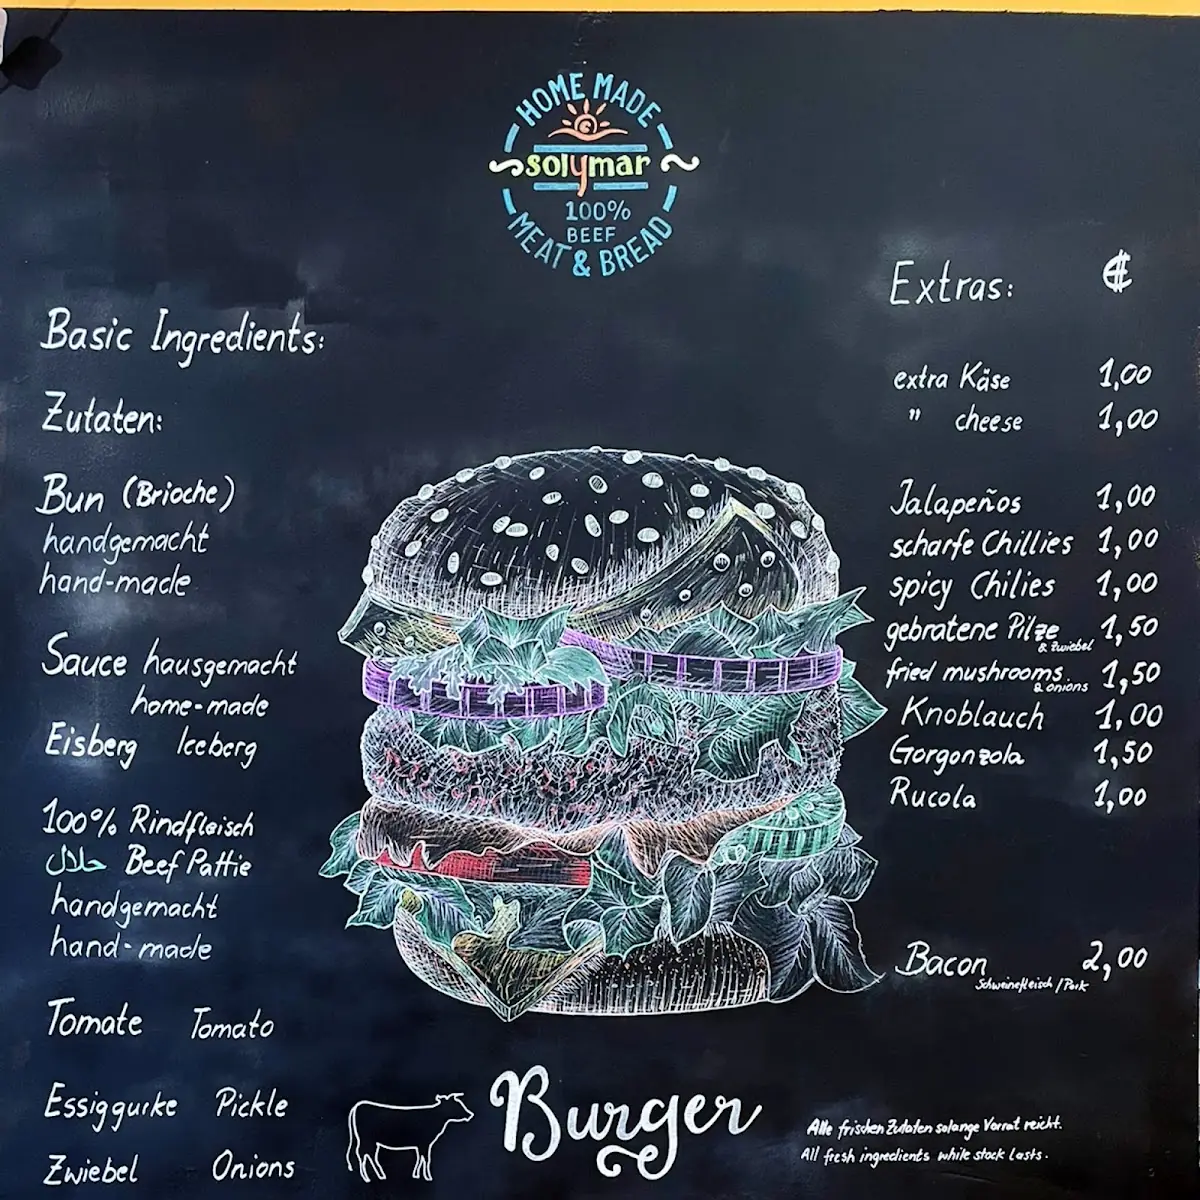 HOME MADE
solymar
100%
BEEF
MEAT & BREAD
Basic Ingredients:
Zutaten:
Bun (Brioche)
handgemacht
hand-made
Sauce hausgemacht
home-made
Eisberg Iceberg
100% Rindfleisch
حلال Beef Pattie
handgemacht
hand-made
Tomate Tomato
Essiggurke Pickle
Zwiebel Onions
Extras: €
extra Käse 1,00
" cheese 1,00
Jalapeños 1,00
scharfe Chillies 1,00
spicy Chilies 1,00
gebratene Pilze 1,50
& Zwiebel
fried mushrooms 1,50
& onions
Knoblauch 1,00
Gorgonzola 1,50
Rucola 1,00
Bacon 2,00
Schweinefleisch/Pork
Burger
Alle frischen Zutaten solange Vorrat reicht.
All fresh ingredients while stock lasts.